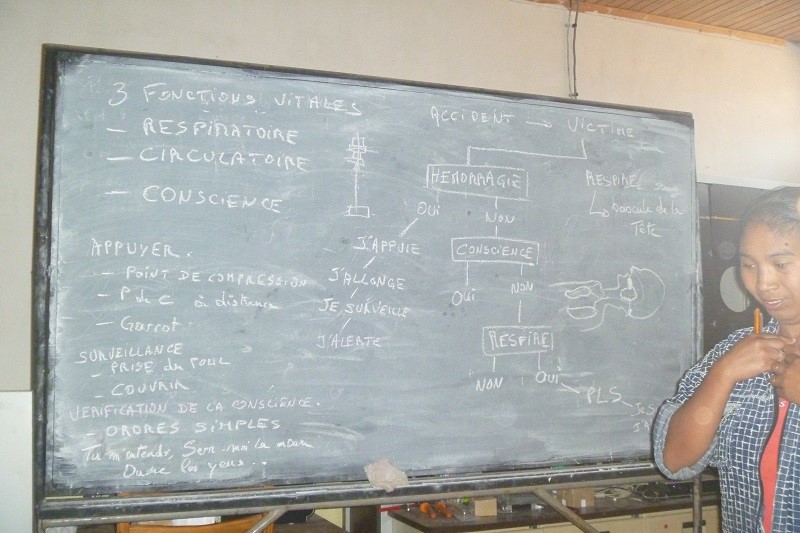 3 FONCTIONS VITALES
– RESPIRATOIRE
– CIRCULATOIRE
– CONSCIENCE
APPUYER.
– POINT DE COMPRESSION
– P de C à distance
– Garrot
SURVEILLANCE
– PRISE du POUL
– COUVRIR
VERIFICATION DE LA CONSCIENCE.
– ORDRES SIMPLES
Tu m'entends, Serre-moi la main
les yeux..
OUI
J'APPUIE
J'ALLONGE
JE SURVEILLE
J'ALERTE
ACCIDENT → VICTIME
HEMORRAGIE
NON
CONSCIENCE
OUI
NON
RESPIRE
NON
OUI
PLS
RESPIRE
bascule de la
Tête